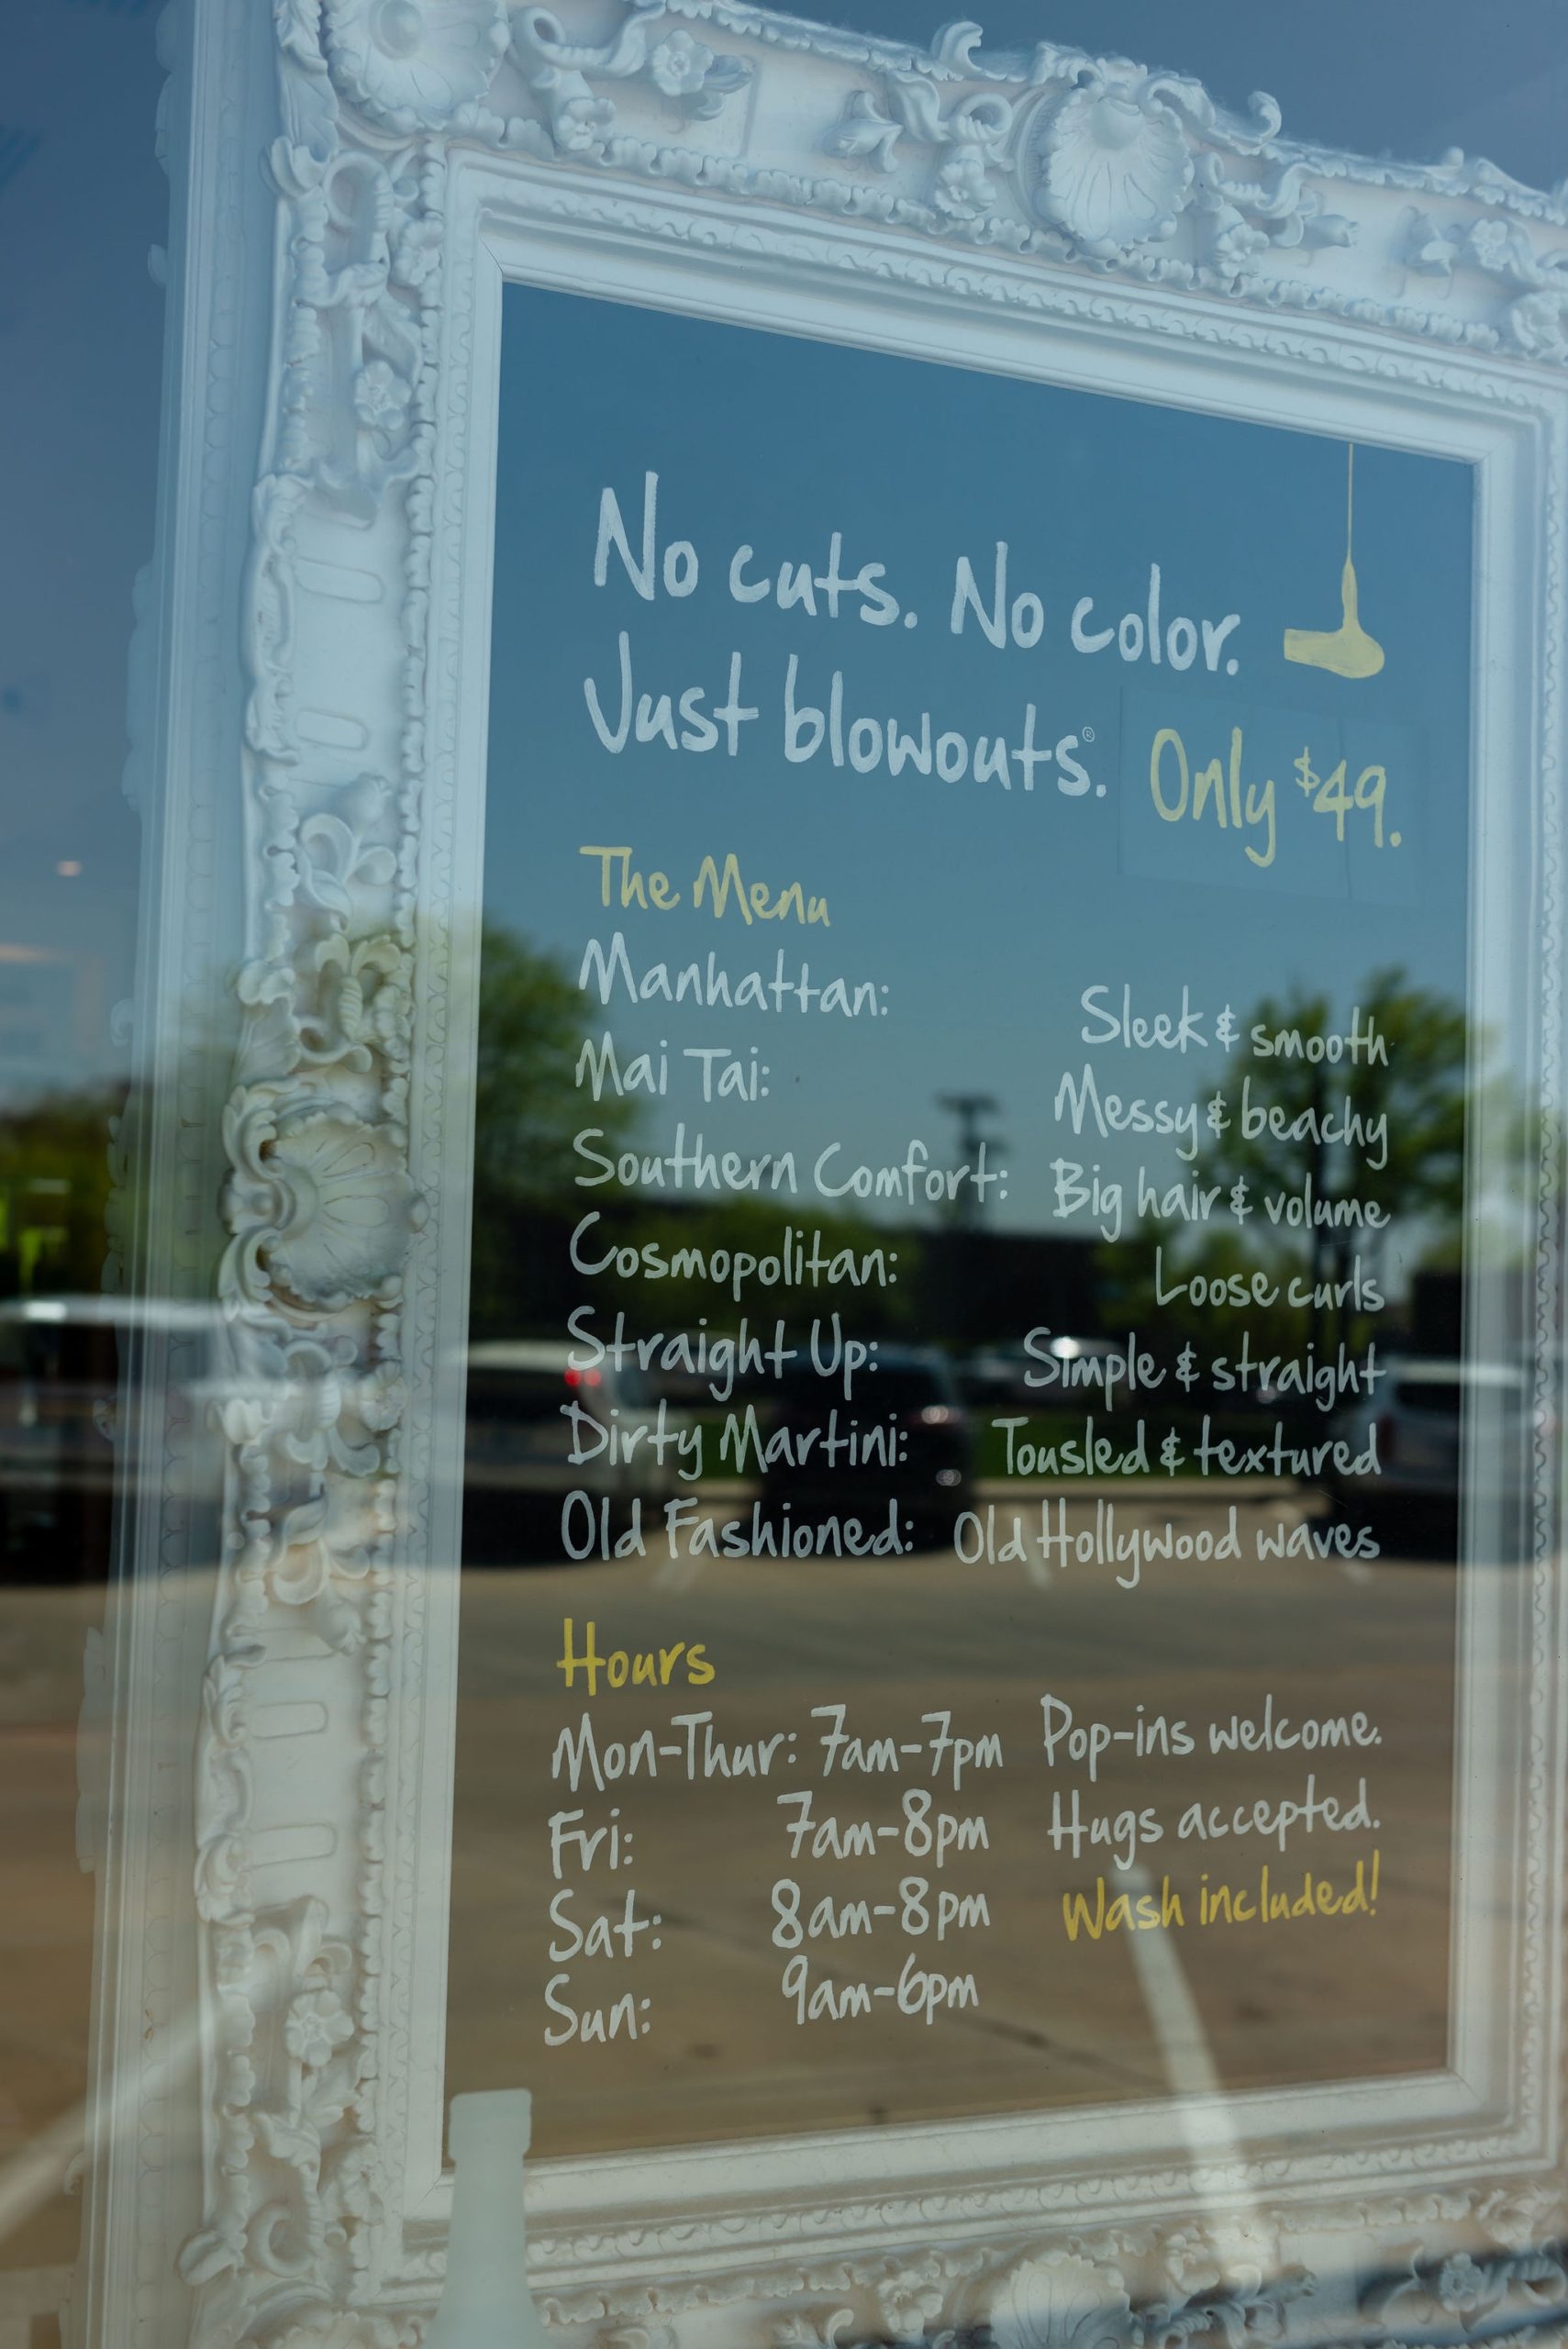 No cuts. No color.
Just blowouts.® Only $49.
The Menu
Manhattan: Sleek & smooth
Mai Tai: Messy & beachy
Southern Comfort: Big hair & volume
Cosmopolitan: Loose curls
Straight Up: Simple & straight
Dirty Martini: Tousled & textured
Old Fashioned: Old Hollywood waves
Hours
Mon-Thur: 7am-7pm Pop-ins welcome.
Fri: 7am-8pm Hugs accepted.
Sat: 8am-8pm Wash included!
Sun: 9am-6pm